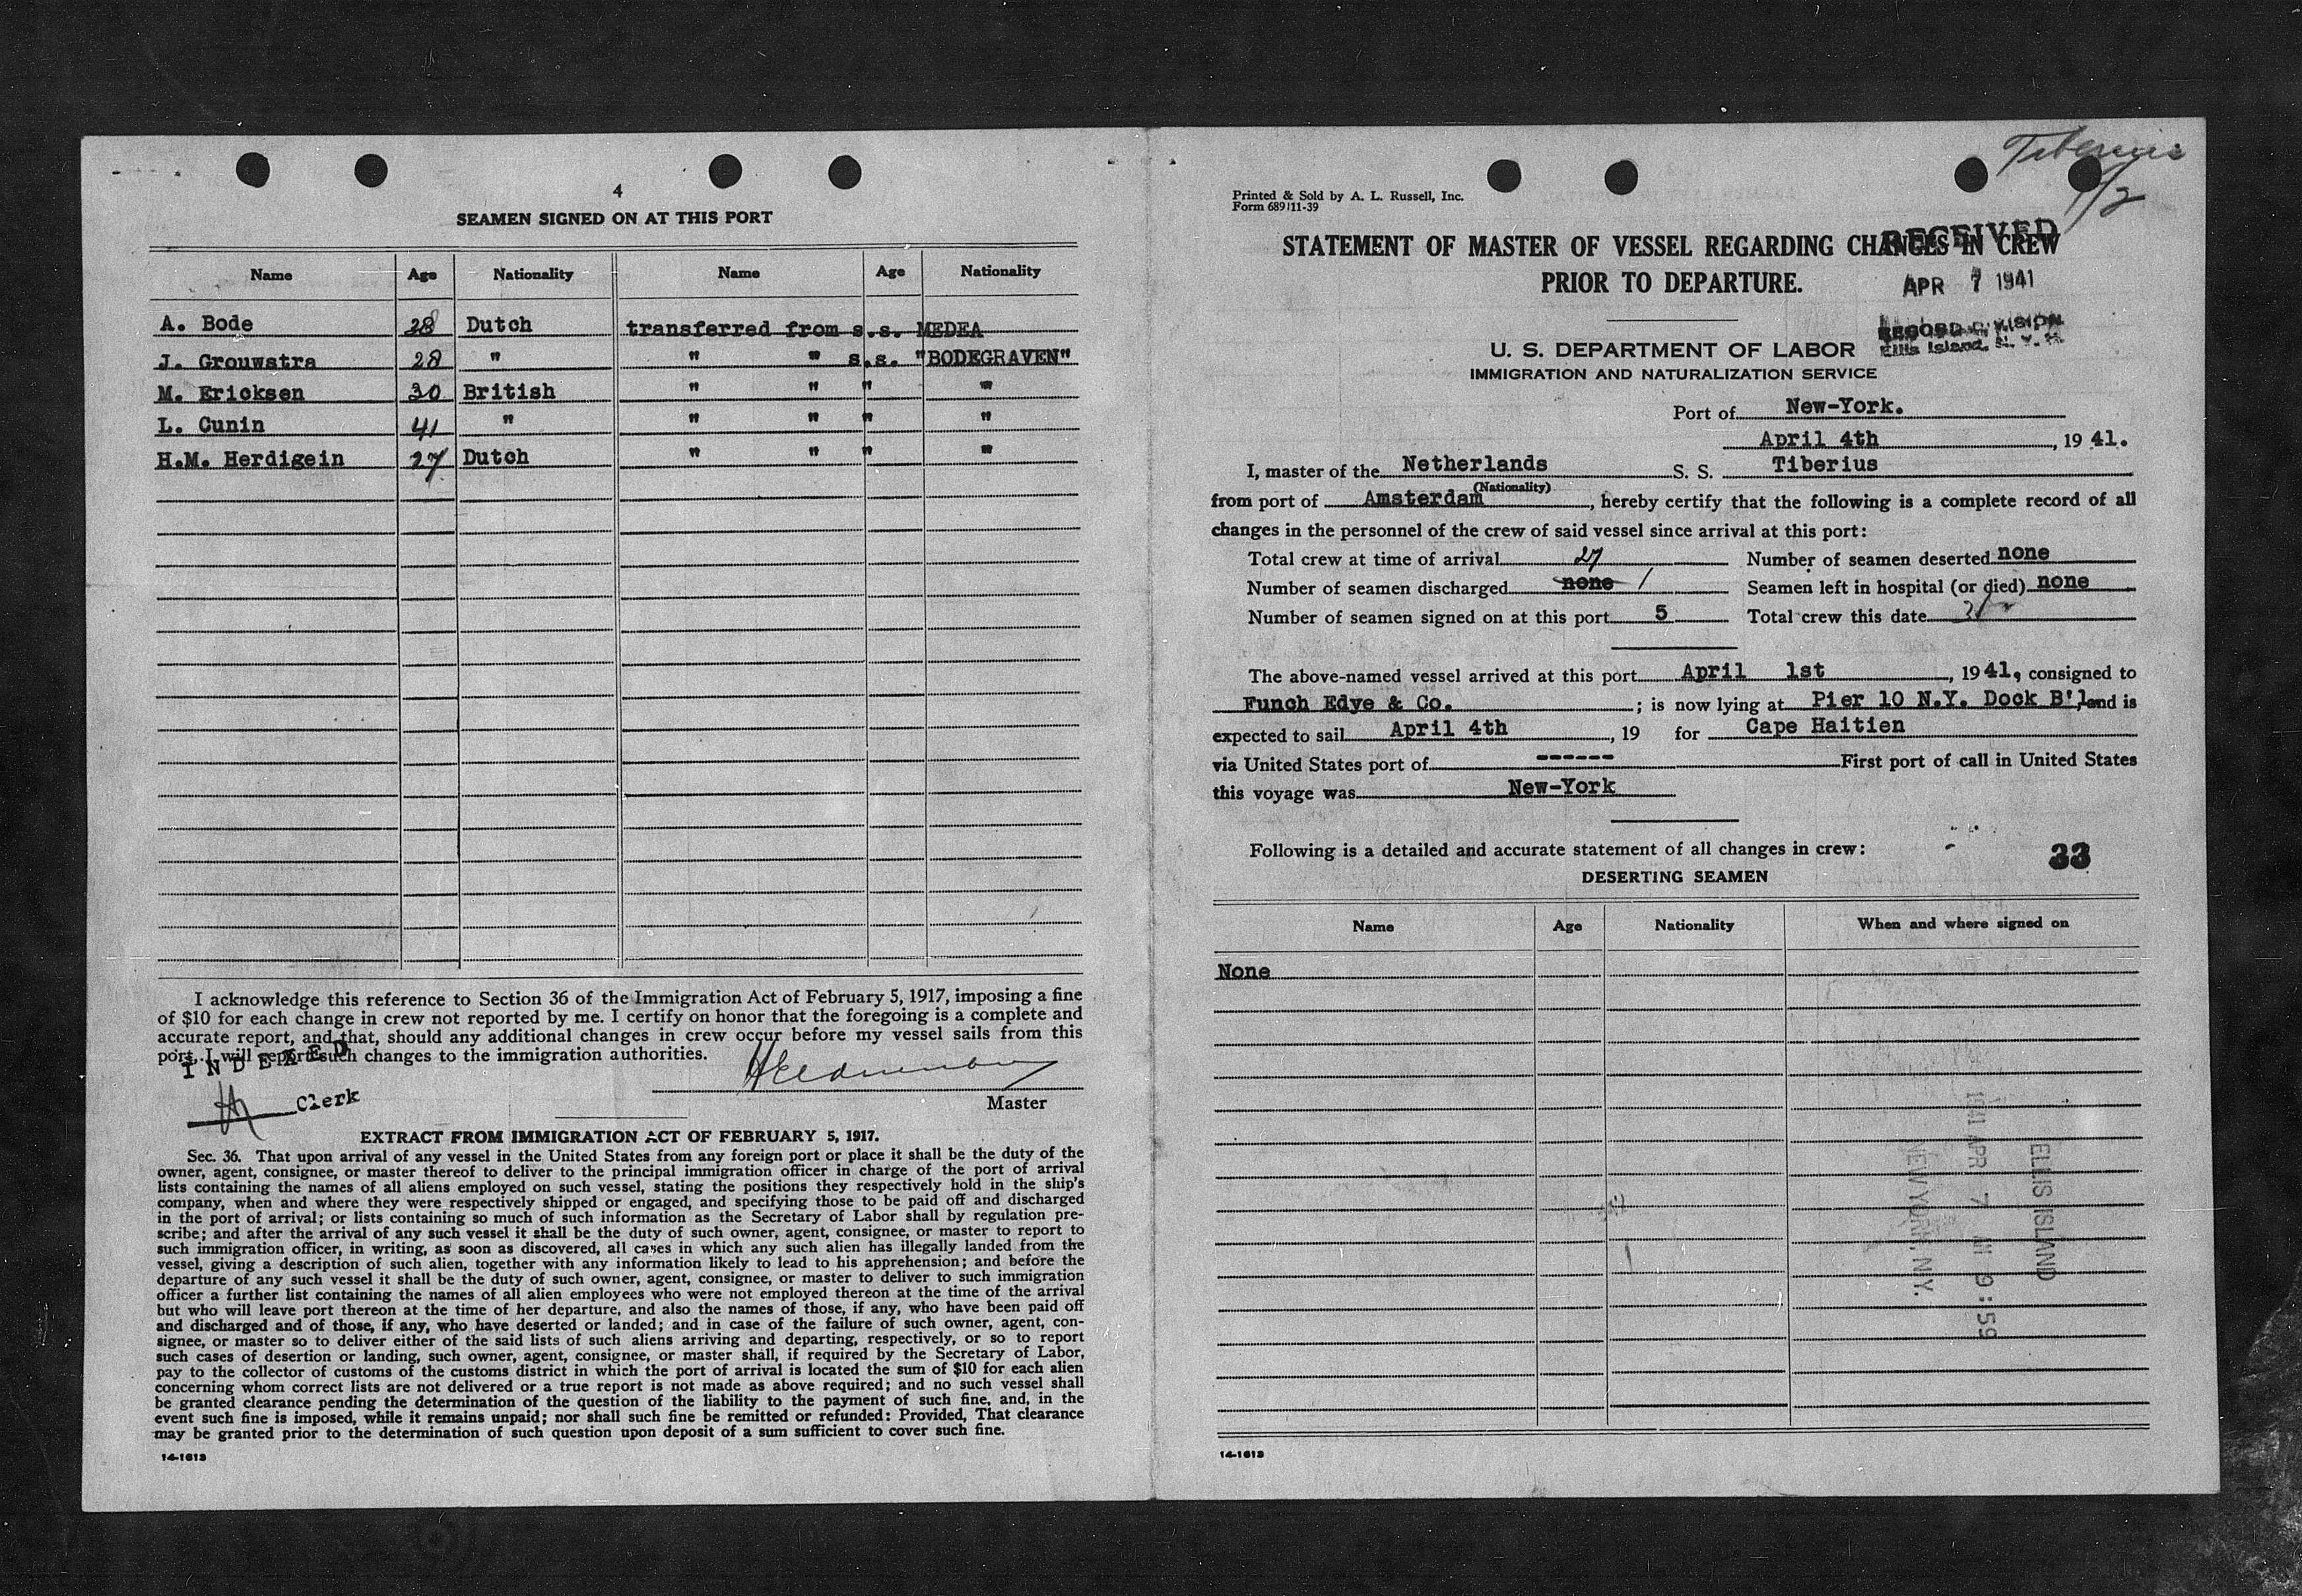 4
SEAMEN SIGNED ON AT THIS PORT
Name Age Nationality Name Age Nationality
A. Bode 28 Dutch transferred from s.s. MEDEA
J. Grouwstra 28 " " " s.s. "BODEGRAVEN"
M. Ericksen 30 British " " " "
L. Cunin 41 " " " " "
H.M. Herdigein 27 Dutch " " " "
I acknowledge this reference to Section 36 of the Immigration Act of February 5, 1917, imposing a fine
of $10 for each change in crew not reported by me. I certify on honor that the foregoing is a complete and
accurate report, and that, should any additional changes in crew occur before my vessel sails from this
port, I will report such changes to the immigration authorities.
INDEXED
Clerk
Master
EXTRACT FROM IMMIGRATION ACT OF FEBRUARY 5, 1917.
Sec. 36. That upon arrival of any vessel in the United States from any foreign port or place it shall be the duty of the
owner, agent, consignee, or master thereof to deliver to the principal immigration officer in charge of the port of arrival
lists containing the names of all aliens employed on such vessel, stating the positions they respectively hold in the ship's
company, when and where they were respectively shipped or engaged, and specifying those to be paid off and discharged
in the port of arrival; or lists containing so much of such information as the Secretary of Labor shall by regulation pre-
scribe; and after the arrival of any such vessel it shall be the duty of such owner, agent, consignee, or master to report to
such immigration officer, in writing, as soon as discovered, all cases in which any such alien has illegally landed from the
vessel, giving a description of such alien, together with any information likely to lead to his apprehension; and before the
departure of any such vessel it shall be the duty of such owner, agent, consignee, or master to deliver to such immigration
officer a further list containing the names of all alien employees who were not employed thereon at the time of the arrival
but who will leave port thereon at the time of her departure, and also the names of those, if any, who have been paid off
and discharged and of those, if any, who have deserted or landed; and in case of the failure of such owner, agent, con-
signee, or master so to deliver either of the said lists of such aliens arriving and departing, respectively, or so to report
such cases of desertion or landing, such owner, agent, consignee, or master shall, if required by the Secretary of Labor,
pay to the collector of customs of the customs district in which the port of arrival is located the sum of $10 for each alien
concerning whom correct lists are not delivered or a true report is not made as above required; and no such vessel shall
be granted clearance pending the determination of the question of the liability to the payment of such fine, and, in the
event such fine is imposed, while it remains unpaid; nor shall such fine be remitted or refunded: Provided, That clearance
may be granted prior to the determination of such question upon deposit of a sum sufficient to cover such fine.
14-1613
Tiberius
1/2
Printed & Sold by A. L. Russell, Inc.
Form 689/11-39
STATEMENT OF MASTER OF VESSEL REGARDING CHANGES IN CREW
PRIOR TO DEPARTURE.
RECEIVED
APR 7 1941
RECORD DIVISION
Ellis Island, N. Y. H.
U. S. DEPARTMENT OF LABOR
IMMIGRATION AND NATURALIZATION SERVICE
Port of New-York.
April 4th, 19 41.
I, master of the Netherlands S. S. Tiberius
(Nationality)
from port of Amsterdam, hereby certify that the following is a complete record of all
changes in the personnel of the crew of said vessel since arrival at this port:
Total crew at time of arrival 27 Number of seamen deserted none
Number of seamen discharged none 1 Seamen left in hospital (or died) none
Number of seamen signed on at this port 5 Total crew this date
The above-named vessel arrived at this port April 1st, 19 41, consigned to
Funch Edye & Co.; is now lying at Pier 10 N.Y. Dock B'l, and is
expected to sail April 4th, 19 for Cape Haitien
via United States port of ------ First port of call in United States
this voyage was New-York
Following is a detailed and accurate statement of all changes in crew:
33
DESERTING SEAMEN
Name Age Nationality When and where signed on
None
ELLIS ISLAND
1941 APR 7 9:59
NEW YORK, N.Y.
14-1613